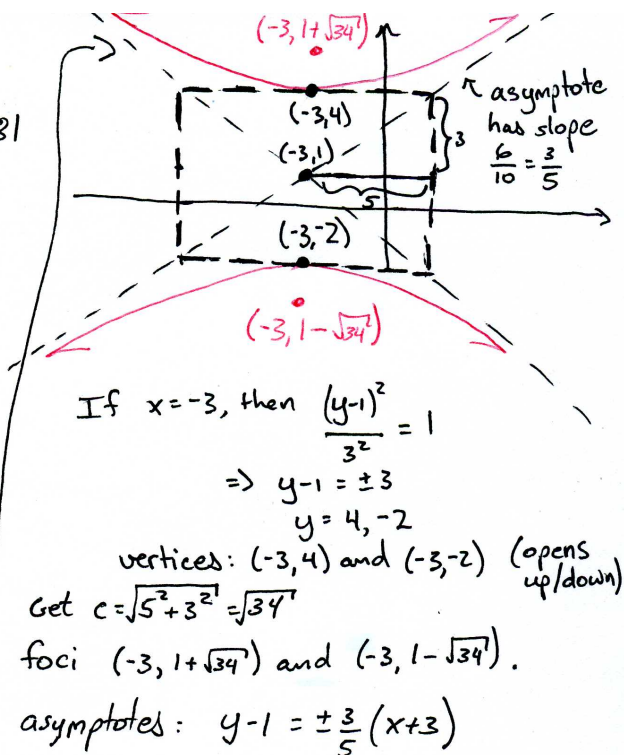 (-3, 1+√34)
31
(-3,4)
asymptote
has slope
6/10 = 3/5
3
(-3,1)
5
(-3,-2)
(-3, 1-√34)
If x=-3, then (y-1)²/3² = 1
=> y-1 = ±3
y = 4, -2
vertices: (-3,4) and (-3,-2) (opens
up/down)
Get c=√5²+3² = √34
foci (-3, 1+√34) and (-3, 1-√34).
asymptotes: y-1 = ±3/5 (x+3)